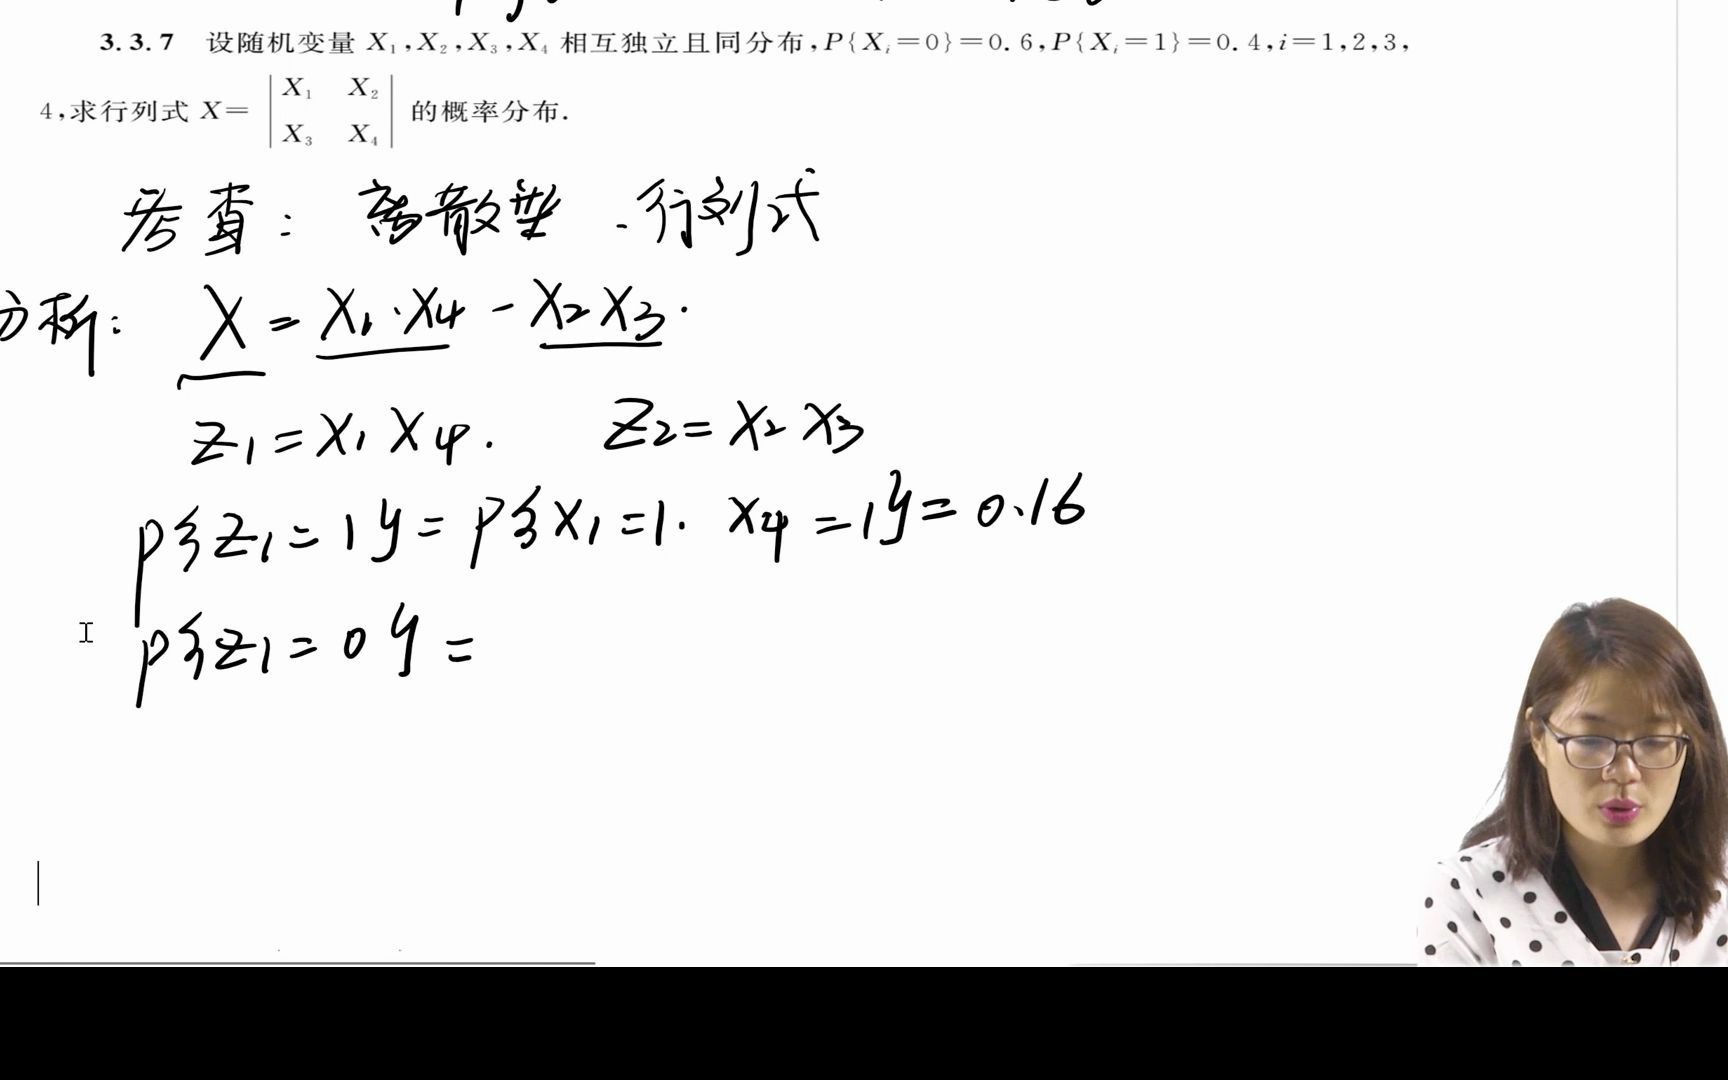 3.3.7 设随机变量 X₁,X₂,X₃,X₄ 相互独立且同分布,P{Xᵢ=0}=0.6,P{Xᵢ=1}=0.4,i=1,2,3,
4,求行列式 X= | X₁ X₂ | 的概率分布.
| X₃ X₄ |
考查: 离散型 、行列式
分析: X = X₁·X₄ - X₂X₃.
Z₁=X₁X₄. Z₂=X₂X₃
P{Z₁=1}=P{X₁=1. X₄=1}=0.16
P{Z₁=0}=